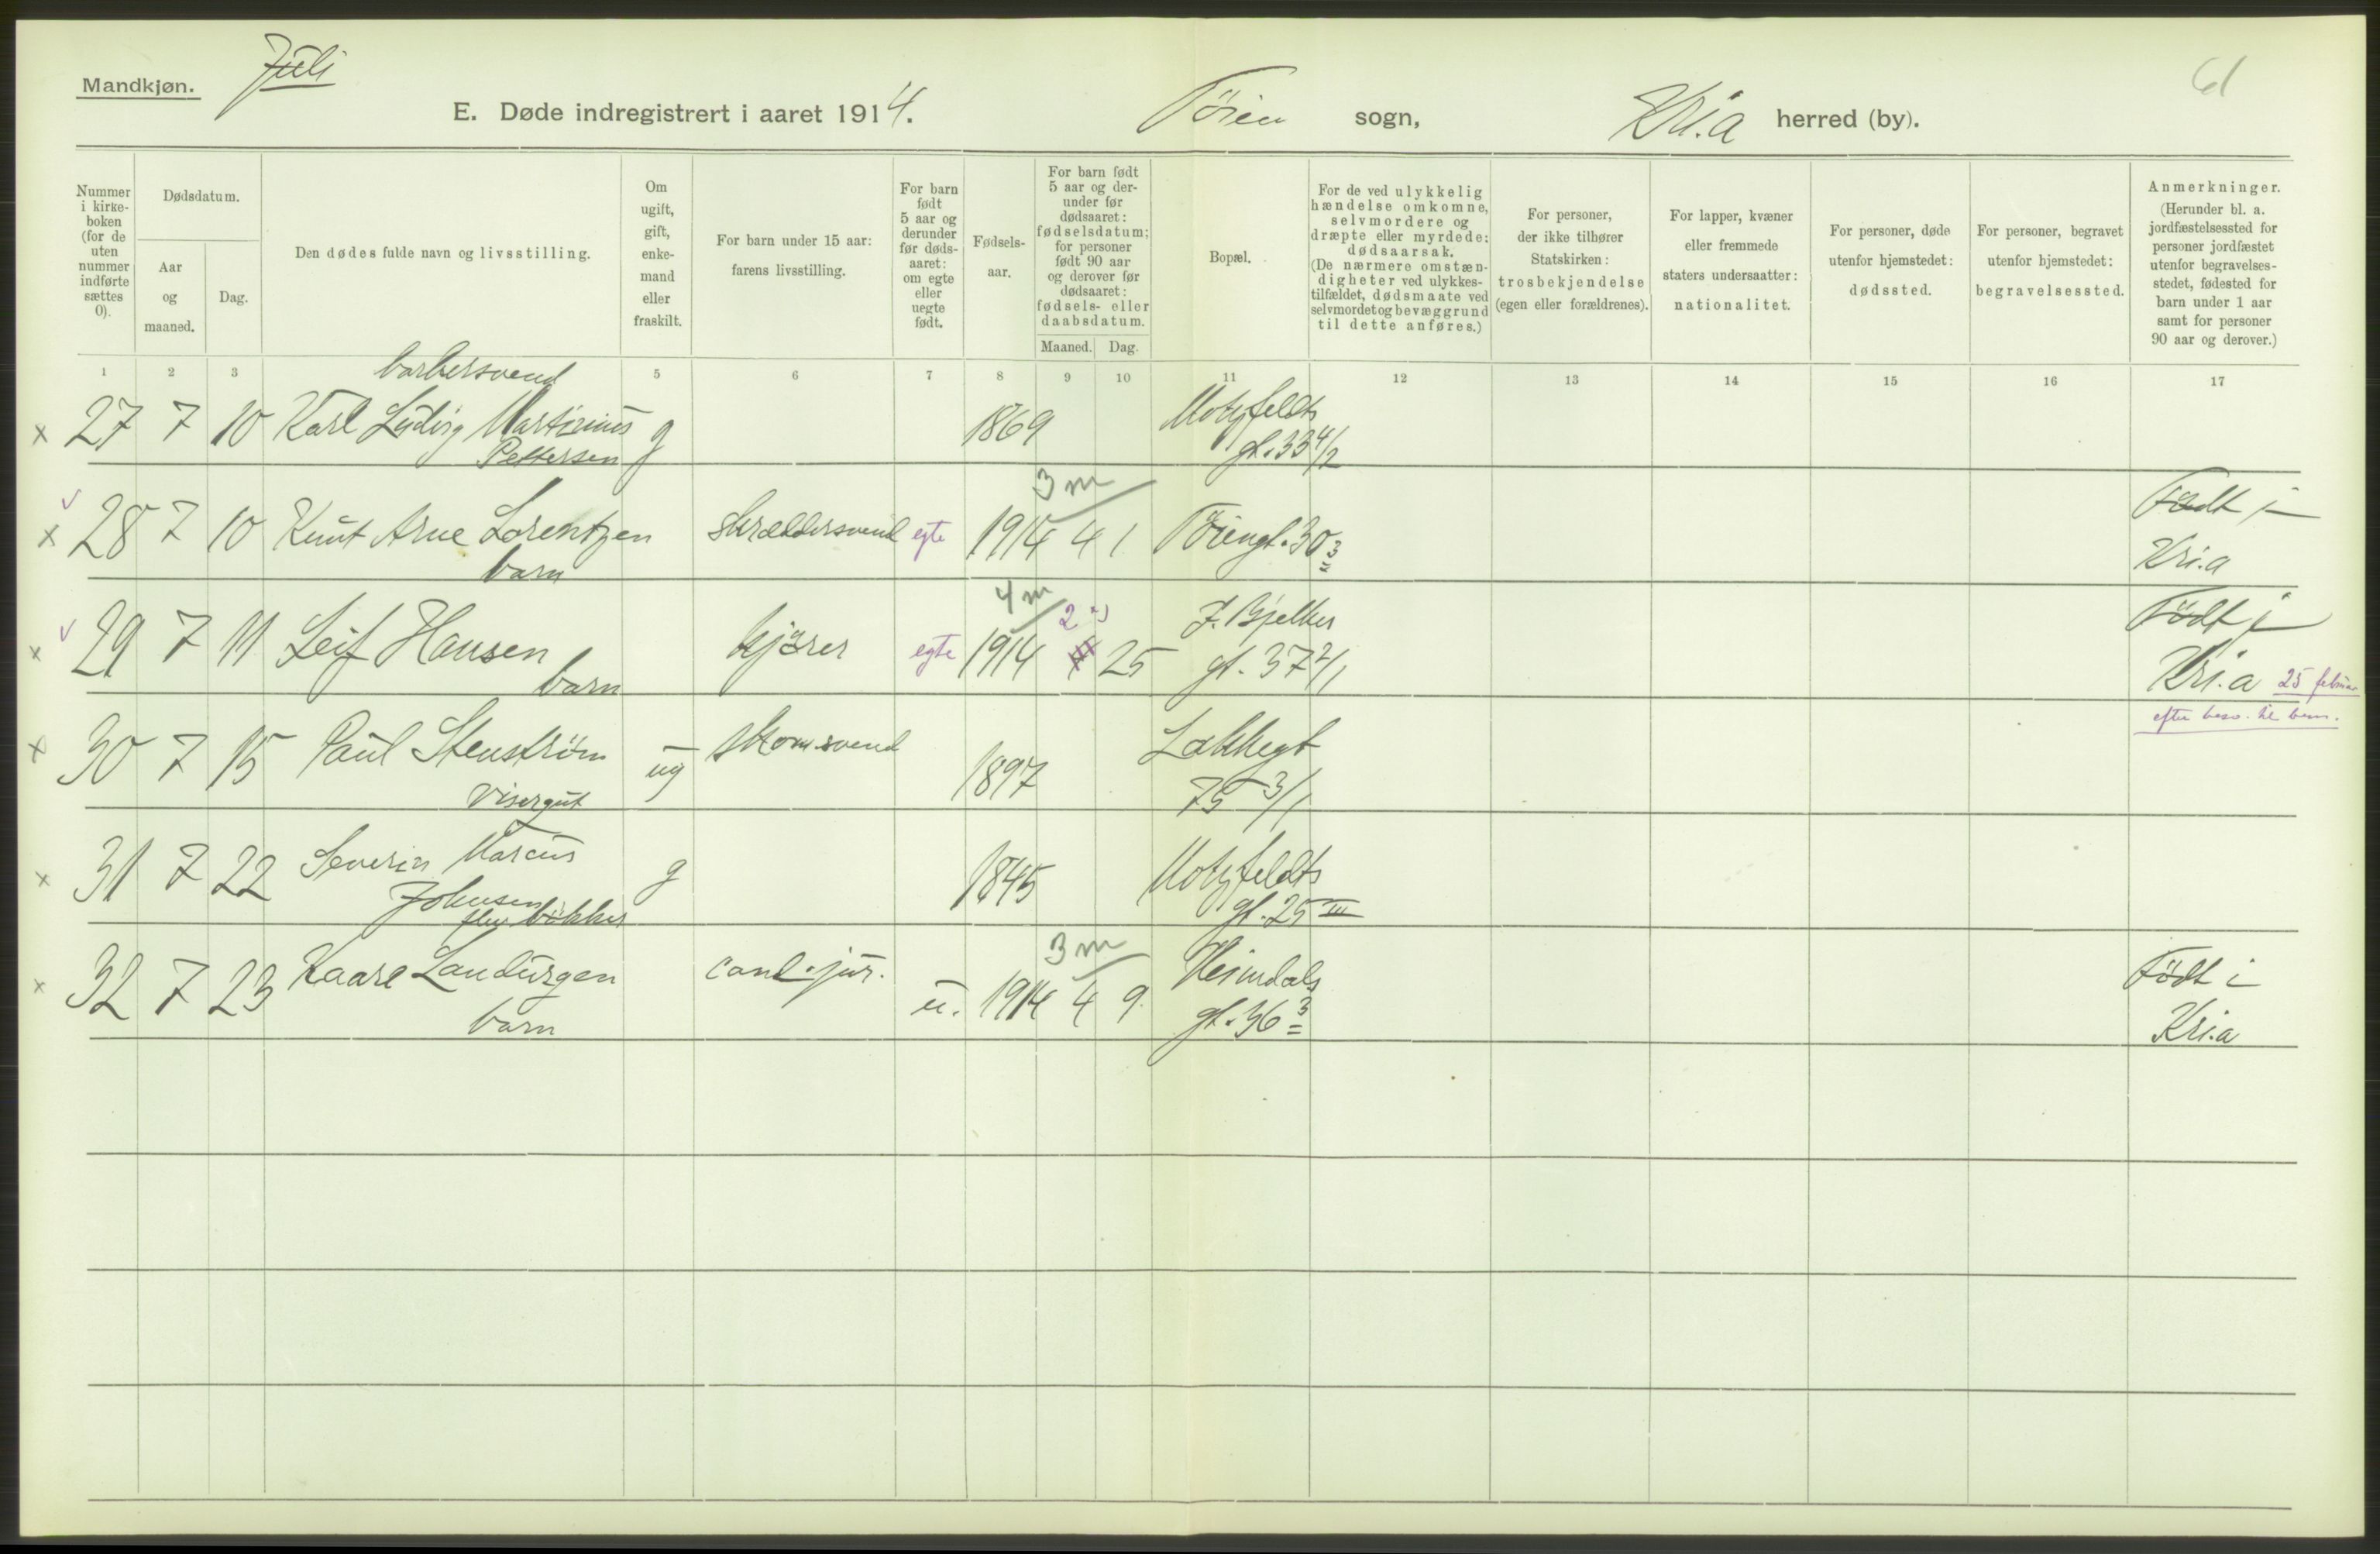 Mandkjøn.
Juli
61
E. Døde indregistrert i aaret 1914.
Tøien sogn,
Kri.a herred (by).
Nummer i kirke-boken (for de uten nummer indførte sættes 0).
Dødsdatum.
Aar og maaned.
Dag.
Den dødes fulde navn og livsstilling.
Om ugift, gift, enke-mand eller fraskilt.
For barn under 15 aar: farens livsstilling.
For barn født 5 aar og derunder før døds-aaret: om egte eller uegte født.
Fødsels-aar.
For barn født 5 aar og der-under før dødsaaret: fødselsdatum; for personer født 90 aar og derover før dødsaaret: fødsels- eller daabsdatum.
Maaned. Dag.
Bopæl.
For de ved ulykkelig hændelse omkomne, selvmordere og dræpte eller myrdede: dødsaarsak. (De nærmere omstæn-digheter ved ulykkes-tilfældet, dødsmaate ved selvmordet og bevæggrund til dette anføres.)
For personer, der ikke tilhører Statskirken: trosbekjendelse (egen eller forældrenes).
For lapper, kvæner eller fremmede staters undersaatter: nationalitet.
For personer, døde utenfor hjemstedet: dødssted.
For personer, begravet utenfor hjemstedet: begravelsessted.
Anmerkninger. (Herunder bl. a. jordfæstelsessted for personer jordfæstet utenfor begravelses-stedet, fødested for barn under 1 aar samt for personer 90 aar og derover.)
1 2 3 5 6 7 8 9 10 11 12 13 14 15 16 17
barbersvend
x 27 7 10 Karl Ludvig Martinius g 1869 Motzfeldts
Pettersen gt. 33 4/2
3 m
x 28 7 10 Knut Arne Lorentzen skræddersvend egte 1914 4 1 Tøiengt. 30 3 Født i
barn Kri.a
4 m
2
x 29 7 11 Leif Hansen kjører egte 1914 25 J. Bjelkes Født i
barn gt. 37 2/1 Kri.a 25 februar
efter besv. til bem.
x 30 7 15 Paul Stenstrøm ug skom.svend 1897 Lakkegt
Visergut 75 3/1
x 31 7 22 Severin Marcus g 1845 Motzfeldts
Johnsen gt. 25 III
bøkker
3 m
x 32 7 23 Kaare Landurgen cand. jur. u. 1914 4 9 Heimdals Født i
barn gt. 36 3 Kri.a